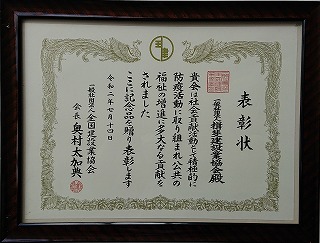 表彰状
一般社団法人揖斐建設業協会殿
貴会は社会貢献活動として積極的に
防疫活動に取り組まれ公共の
福祉の増進に多大なる貢献を
されました
ここに記念品を贈り表彰します
令和二年七月十四日
一般社団法人全国建設業協会
会長 奥村太加典